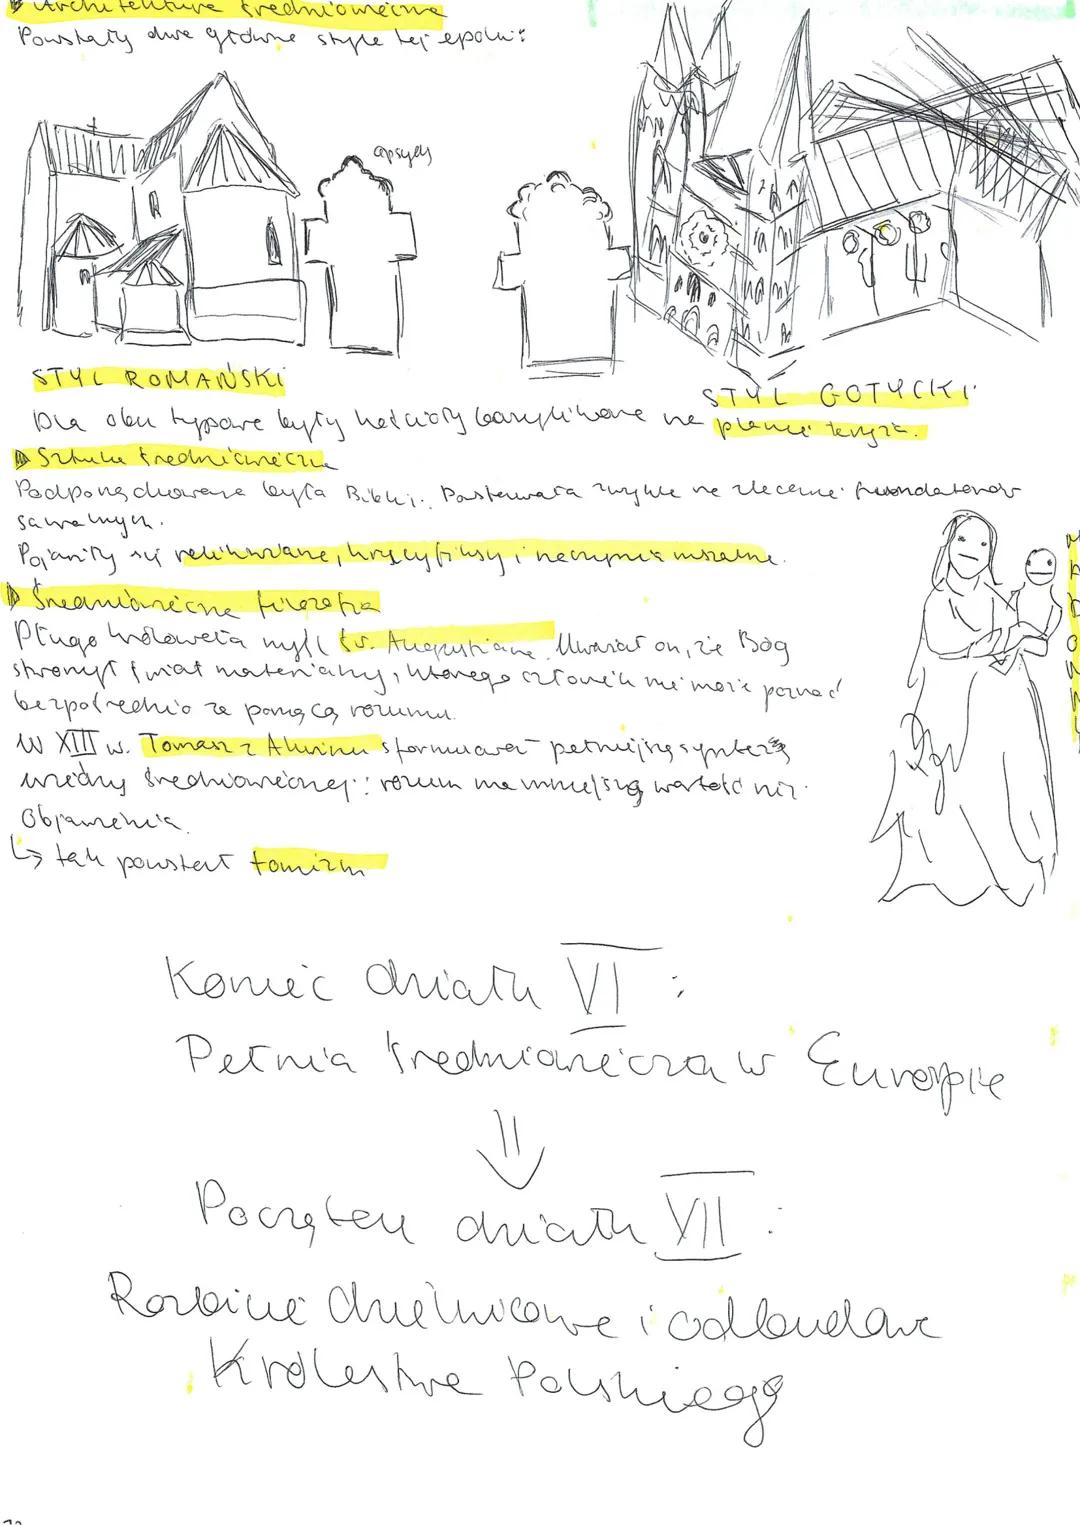 Architektura średniowieczna
Powstały dwa główne style tej epoki:
apsydy
STYL ROMAŃSKI
STYL GOTYCKI
Dla obu typowe były kościoły bazylikowe na planie krzyża.
Sztuka średniowieczna
Podporządkowana była Biblii. Powstawała zwykle na zlecenie fundatorów
sakralnych.
Pojawiły się relikwiarze, krucyfiksy i naczynia mszalne.
Średniowieczna filozofia
Długo królowała myśl św. Augustiana. Uważał on, że Bóg
stworzył świat materialny, którego człowiek nie może poznać
bezpośrednio za pomocą rozumu.
W XIII w. Tomasz z Akwinu sformułował pełniejszą syntezę
wiedzy średniowiecznej: rozum ma mniejszą wartość niż
Objawienia.
↳ tak powstał tomizm
Koniec działu VI:
Pełnia średniowiecza w Europie
⇓
Początek działu VII:
Rozbicie dzielnicowe i odbudowa
Królestwa Polskiego